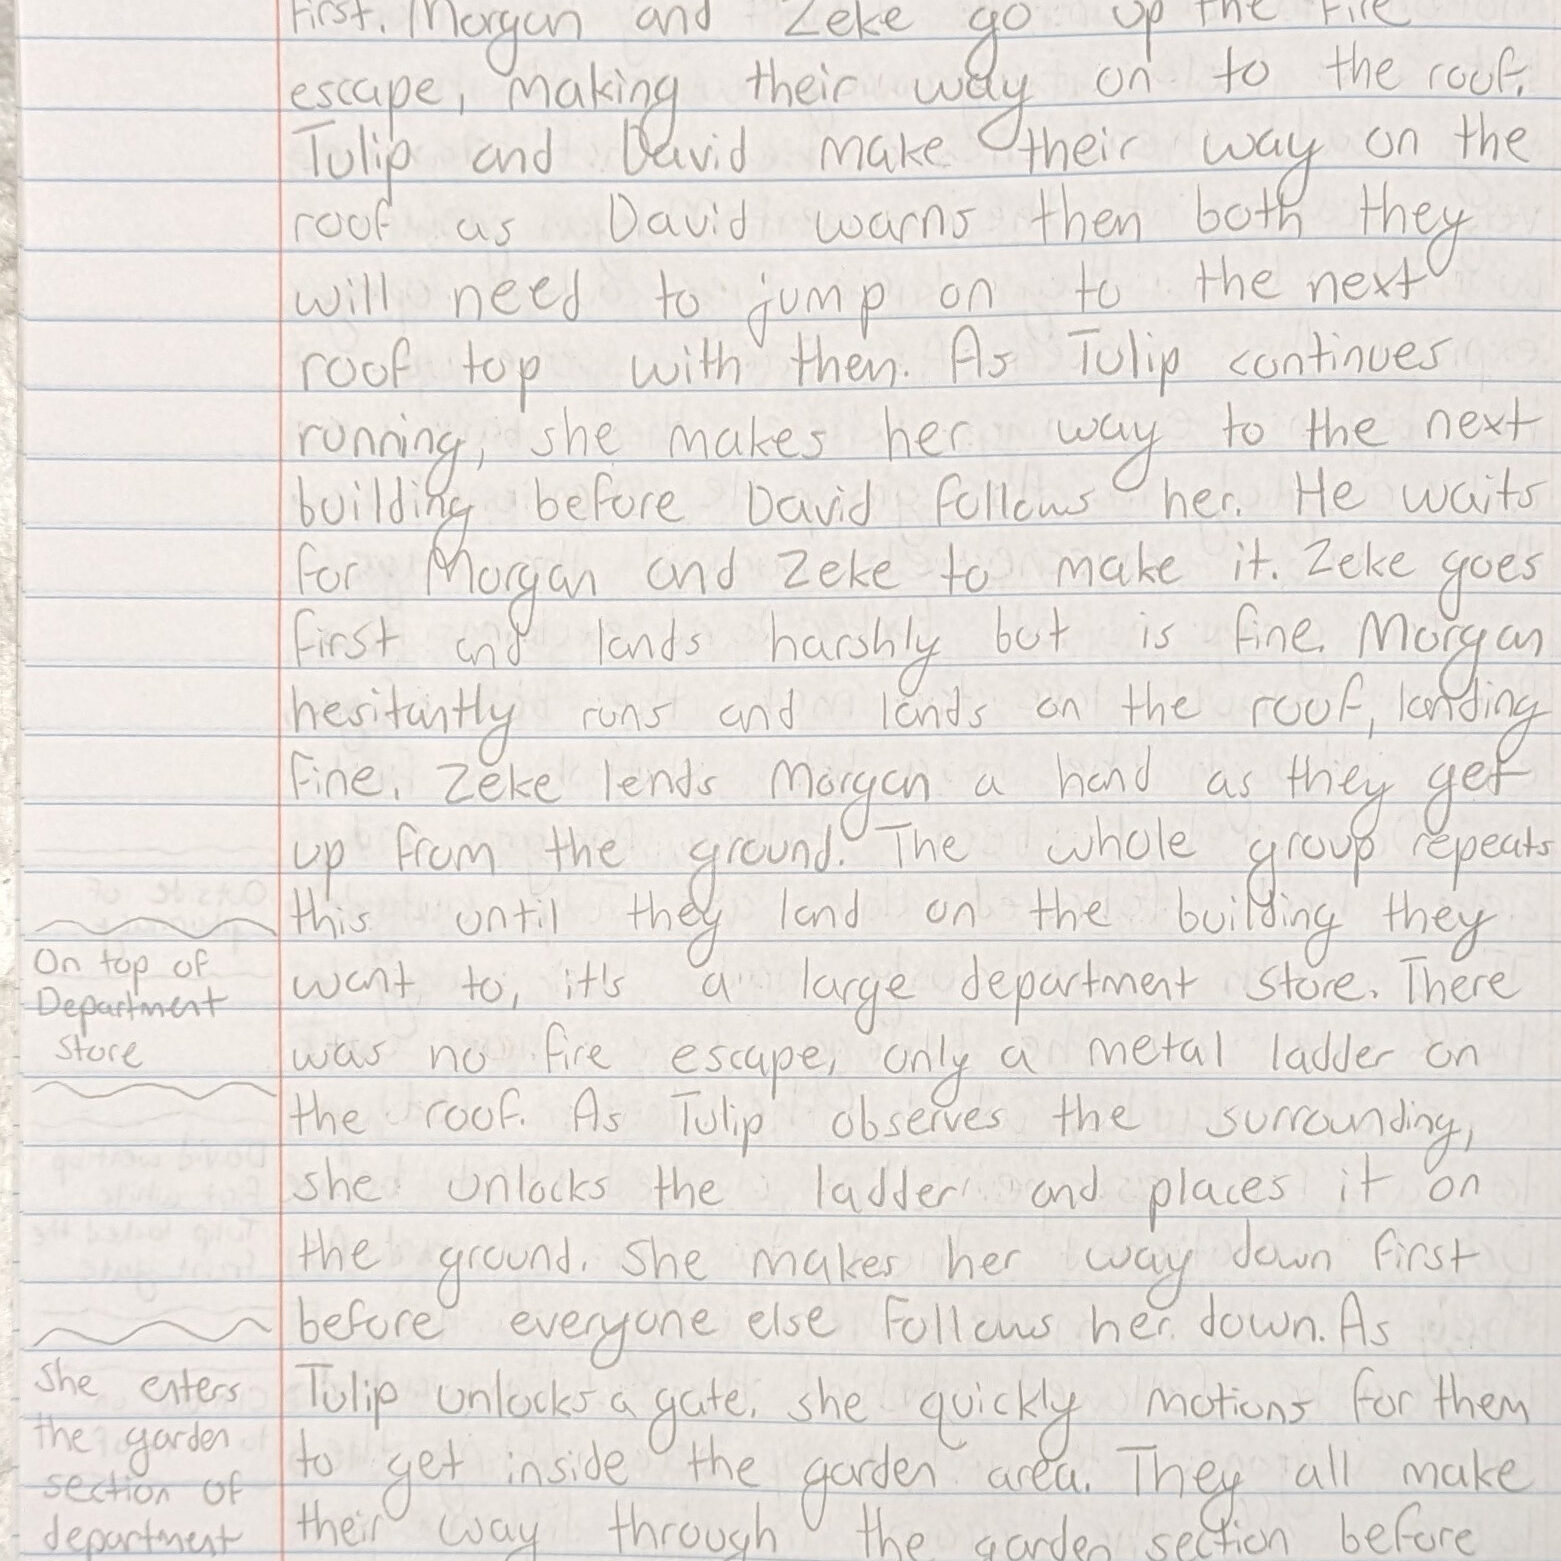 first. Morgan and Zeke go up the fire
escape, making their way on to the roof.
Tulip and David make their way on the
roof as David warns then both they
will need to jump on to the next
roof top with then. As Tulip continues
running, she makes her way to the next
building before David follows her. He waits
for Morgan and Zeke to make it. Zeke goes
first and lands harshly but is fine. Morgan
hesitantly runs and lands on the roof, landing
fine. Zeke lends Morgan a hand as they get
up from the ground. The whole group repeats
this until they land on the building they
want to, it's a large department store. There
was no fire escape, only a metal ladder on
the roof. As Tulip observes the surrounding,
she unlocks the ladder and places it on
the ground. She makes her way down first
before everyone else follows her down. As
Tulip unlocks a gate, she quickly motions for them
to get inside the garden area. They all make
their way through the garden section before
On top of
Department
Store
She enters
the garden
section of
department